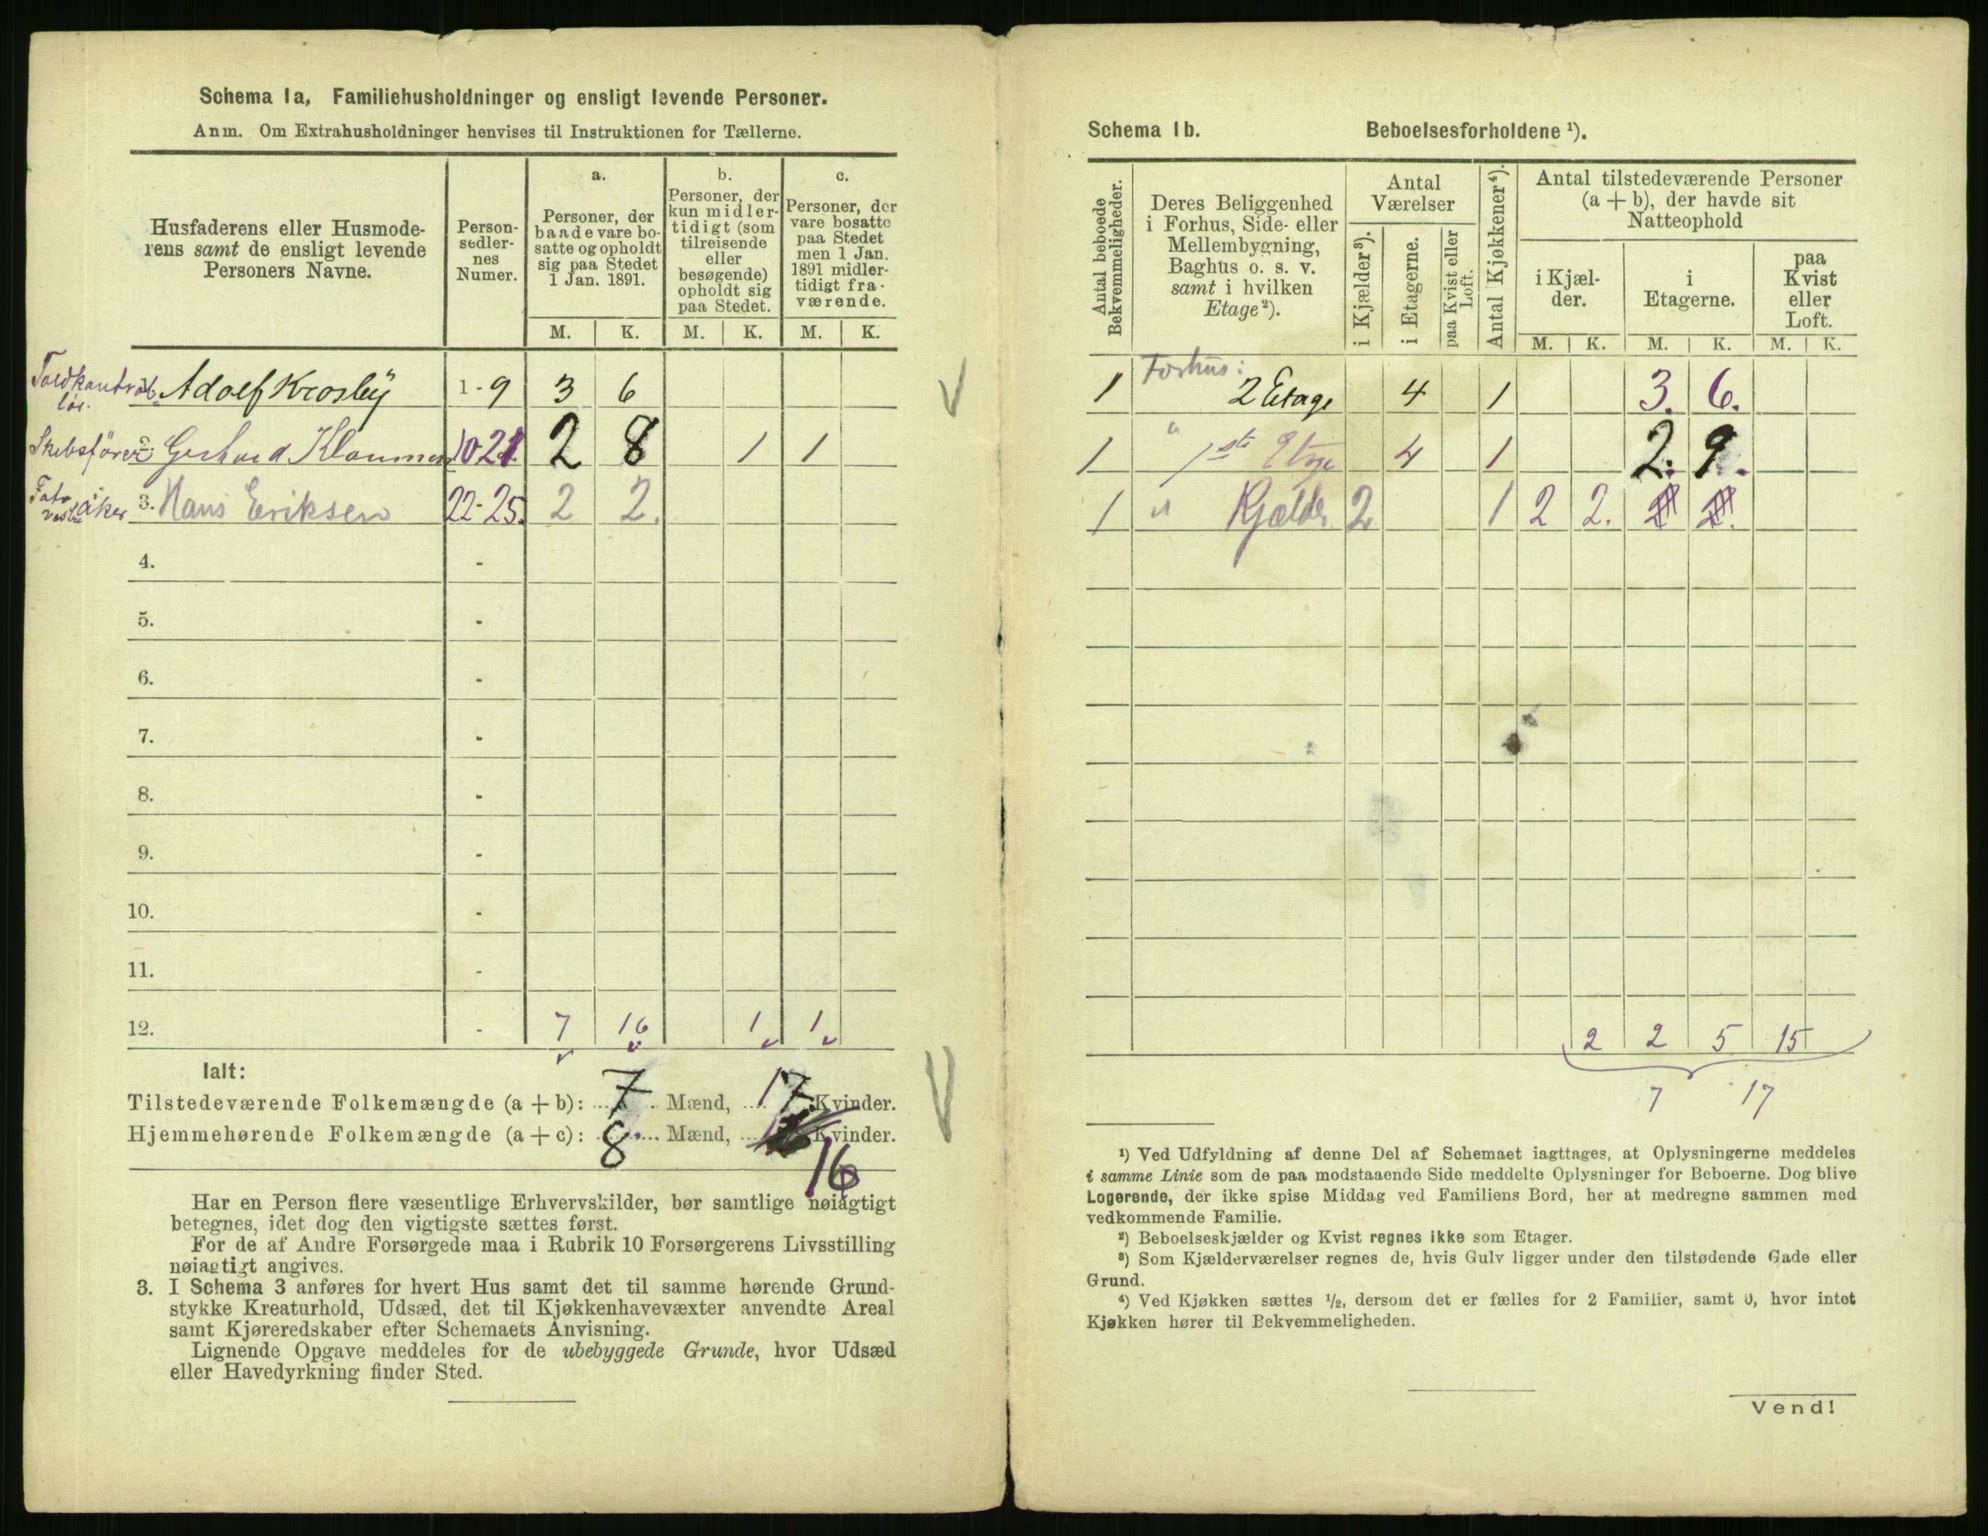 Schema 1a, Familiehusholdninger og ensligt levende Personer.
Anm. Om Extrahusholdninger henvises til Instruktionen for Tællerne.
Husfaderens eller Husmode-
rens samt de ensligt levende
Personers Navne.
Person-
sedler-
nes
Numer.
a.
Personer, der
baade vare bo-
satte og opholdt
sig paa Stedet
1 Jan. 1891.
b.
Personer, der
kun midler-
tidigt (som
tilreisende
eller
besøgende)
opholdt sig
paa Stedet.
c.
Personer, der
vare bosatte
paa Stedet
men 1 Jan.
1891 midler-
tidigt fra-
værende.
M. K. M. K. M. K.
Toldkontrol-
lør. Adolf Krosby 1-9 3 6
Skibsfører 2. Gerhard 10-21 2 8 1 1
3. Hans Eriksen 22-25. 2 2.
4. -
5. -
6. -
7. -
8. -
9. -
10. -
11. -
12. - 7 16 1 1
Ialt:
Tilstedeværende Folkemængde (a + b): 7 Mænd, 17 Kvinder.
Hjemmehørende Folkemængde (a + c): 8 Mænd, Kvinder.
16
Har en Person flere væsentlige Erhvervskilder, bør samtlige nøiagtigt
betegnes, idet dog den vigtigste sættes først.
For de af Andre Forsørgede maa i Rubrik 10 Forsørgerens Livsstilling
nøiagtigt angives.
3. I Schema 3 anføres for hvert Hus samt det til samme hørende Grund-
stykke Kreaturhold, Udsæd, det til Kjøkkenhavevæxter anvendte Areal
samt Kjøreredskaber efter Schemaets Anvisning.
Lignende Opgave meddeles for de ubebyggede Grunde, hvor Udsæd
eller Havedyrkning finder Sted.
Schema 1b. Beboelsesforholdene ¹).
Antal beboede
Bekvemmeligheder.
Deres Beliggenhed
i Forhus, Side- eller
Mellembygning,
Baghus o. s. v.
samt i hvilken
Etage²).
Antal
Værelser
i Kjælder³).
i Etagerne.
paa Kvist eller
Loft.
Antal Kjøkkener⁴).
Antal tilstedeværende Personer
(a + b), der havde sit
Natteophold
i Kjæl-
der.
i
Etagerne.
paa
Kvist
eller
Loft.
M. K. M. K. M. K.
Forhus:
1 2 Etage 4 1 3. 6.
1 " 1ste Etage 4 1 2. 9.
1 " Kjælder 2 1 2 2.
2 2 5 15
7 17
¹) Ved Udfyldning af denne Del af Schemaet iagttages, at Oplysningerne meddeles
i samme Linie som de paa modstaaende Side meddelte Oplysninger for Beboerne. Dog blive
Logerende, der ikke spise Middag ved Familiens Bord, her at medregne sammen med
vedkommende Familie.
²) Beboelseskjælder og Kvist regnes ikke som Etager.
³) Som Kjælderværelser regnes de, hvis Gulv ligger under den tilstødende Gade eller
Grund.
⁴) Ved Kjøkken sættes ½, dersom det er fælles for 2 Familier, samt 0, hvor intet
Kjøkken hører til Bekvemmeligheden.
Vend!